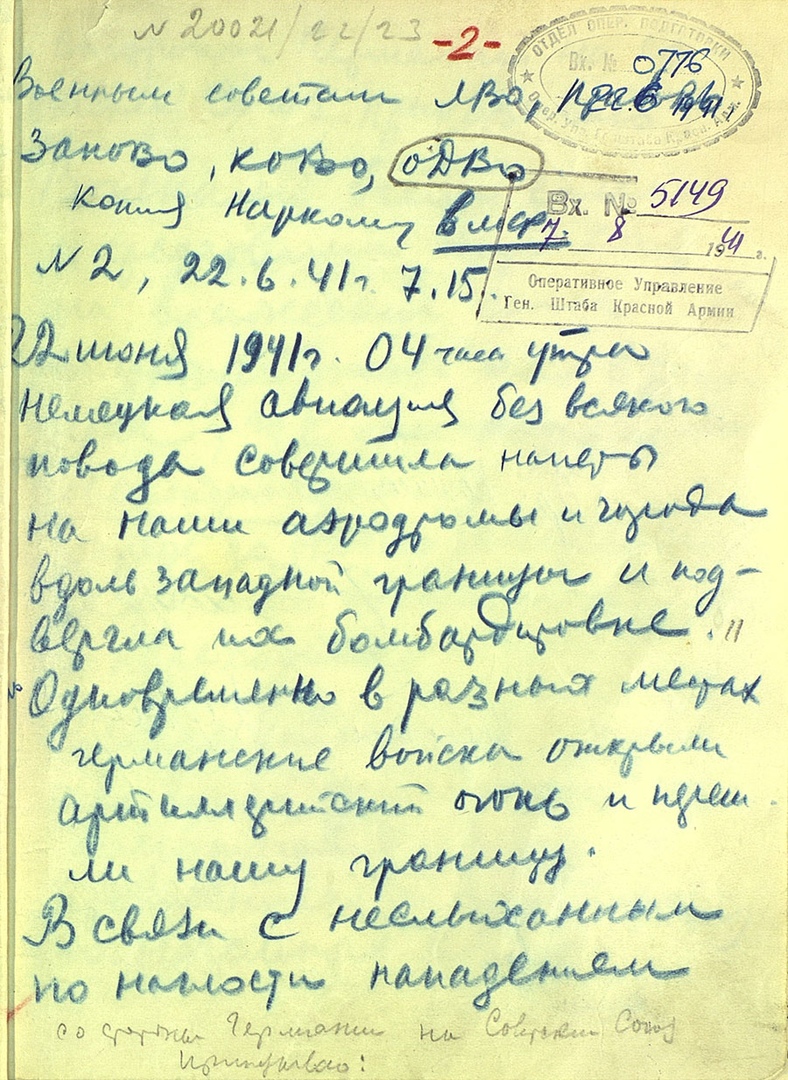 N 20021/22/23
-2-
ОТДЕЛ ОПЕР. ПОДГОТОВКИ
Вх. № 0776
22 6 1941
Опер. Упр. Генштаба Красн. Арм.
Военным советам ЛВО, ПрибОВО
ЗапОВО, КОВО, ОДВО
копия Наркому ВМФ.
N 2, 22.6.41г. 7.15.
Вх. № 5149
7. 8 1941 г.
Оперативное Управление
Ген. Штаба Красной Армии
22 июня 1941г. 04 часа утра
немецкая авиация без всякого
повода совершила налеты
на наши аэродромы и города
вдоль западной границы и под-
вергла их бомбардировке. //
Одновременно в разных местах
германские войска открыли
артиллерийский огонь и переш-
ли нашу границу.
В связи с неслыханным
по наглости нападением
со стороны Германии на Советский Союз
приказываю: